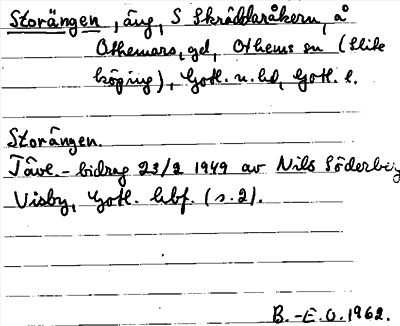 Storängen, äng, S Skräddaråkern, å
Othemars, gd, Othems sn (Slite
köping), Gotl. n. hd, Gotl. l.
Storängen.
Tävl.-bidrag 23/2 1949 av Nils Söderberg
Visby, Gotl. hbf. (s.2).
B.-E.O.1962.